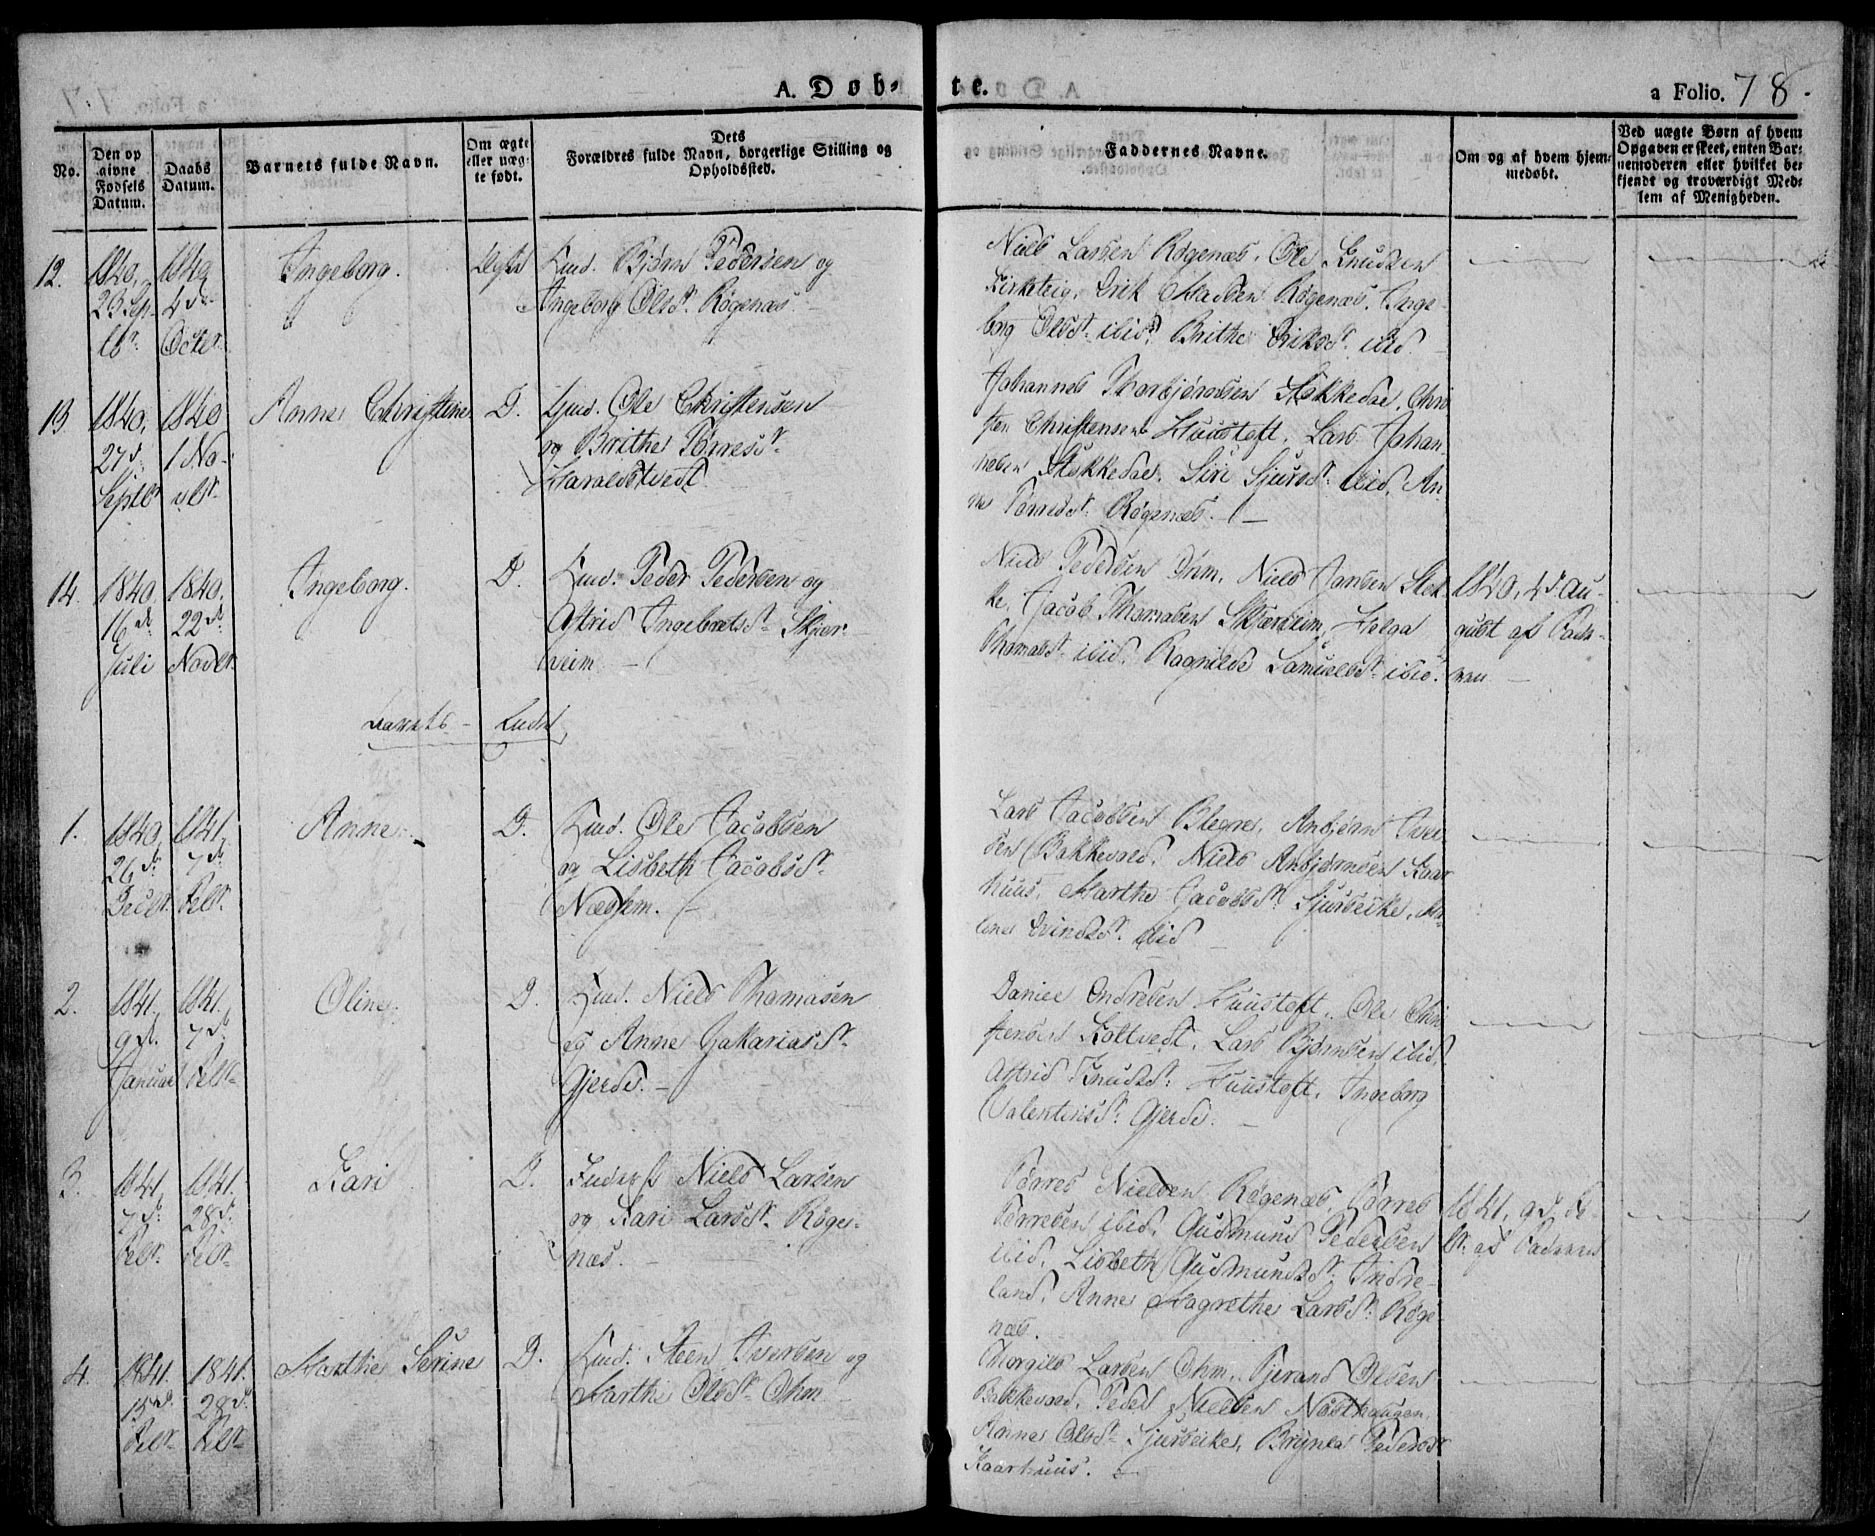 A. Døb-
te.
a Folio. 78.
No.
Den op
givne
Fødsels
Datum.
Daabs
Datum.
Barnets fulde Navn.
Om ægte
eller uæg-
te født.
Dets
Forældres fulde Navn, borgerlige Stilling og
Opholdssted.
Faddernes Navne.
Om og af hvem hjem-
medøbt.
Ved uægte Børn af hvem
Opgaven er skeet, enten Bar-
nemoderen eller hvilket be-
kjendt og troværdigt Med-
lem af Menigheden.
12.
1840,
23 Sep-
tbr.
1840
4 d.
Octbr.
Ingeborg.
Ægte
Gmd. Bjørn Pedersen og
Ingeborg Olsd. Røgenæs.
Niels Larsen Røgenæs. Ole Knudsen
Kirketeig. Erik Madsen Røgenæs. Inge-
borg Olsd. ibid. Brithe Eriksd. ibid.
13.
1840,
27 d.
Septbr
1840
1 No-
vbr.
Anne Christine
D.
Gmd. Ole Christensen
og Brithe Tørresd.
Haraldstvedt
Johannes Thorbjørnsen Stokkedal. Chri-
sten Christensen Huustoft. Lars Johan-
nesen Stokkedal. Siri Sjursd. ibid. An-
ne Tørresd. Røgenæs.
14.
1840.
16 d.
Juli
1840.
22 d.
Novbr.
Ingeborg.
D.
Gmd. Peder Pedersen og
Astrid Ingebretsd. Skjer-
veim.
Niels Pedersen Ohm. Niels Jansen Stok-
ke. Jacob Thomasen Skjerveim. Helga
Thomasd. ibid. Ragnilde Samuelsd. ibid.
1840, 4 d. Au-
gust af Fade-
ren
Aarets - Ende
1.
1840,
26 d.
Decbr.
1841,
7 d.
Febr.
Anne
D.
Gmd. Ole Jacobsen
og Lisbeth Jacobsd.
Næshem.
Lars Jacobsen Blegne. Anbjørn Iver-
sen Bakkevold. Niels Anbjørnsen Kaar-
huus. Marthe Jacobsd. Sjurseike.
Eivindsd. ibid
2.
1841.
9 d.
Januar
1841.
7 d.
Febr.
Oline
D.
Gmd. Niels Thomasen
og Anne Zakariasd.
Gjerde.
Daniel Endresen Huustoft. Ole Chri-
stensen Koltvedt. Lars Bjørnsen ibid.
Astrid Knudsd. Huustoft. Ingeborg
Valentinsd. Gjerde.
3.
1841.
7 d.
Febr.
1841.
28 d.
Febr.
Kari
D.
Inderst Niels Larsen
og Kari Larsd. Røge-
næs.
Tørres Nielsen Røgenæs. Tørres
Tørresen ibid. Gudmund Pedersen
ibid. Lisbeth Gudmundsd. Indre-
land. Anne Magrethe Larsd. Røge-
næs.
1841, 9 d. Fe-
br. af Faderen
4.
1841.
15 d.
Febr.
1841.
28 d.
Febr.
Marthe Serine
D.
Gmd. Steen Iversen og
Marthe Olsd. Ohm
Thorgils Larsen Ohm. Tjerand Olsen
Bakkevold. Peder Nielsen Nøsthaugen.
Anne Olsd. Sjurseike. Brynla Pedersd.
Kaarhuus.